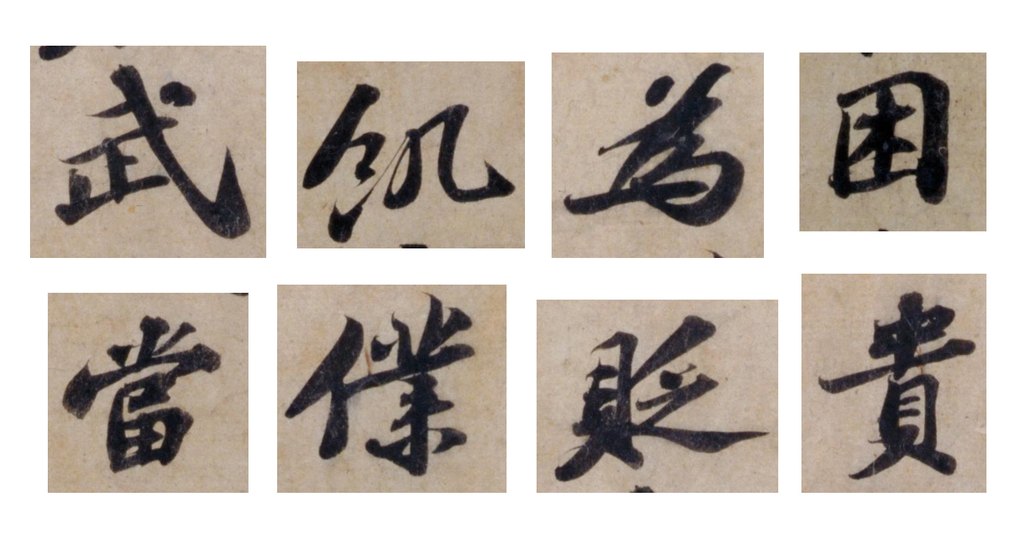 武 飢 為 困
當 僕 貶 貴